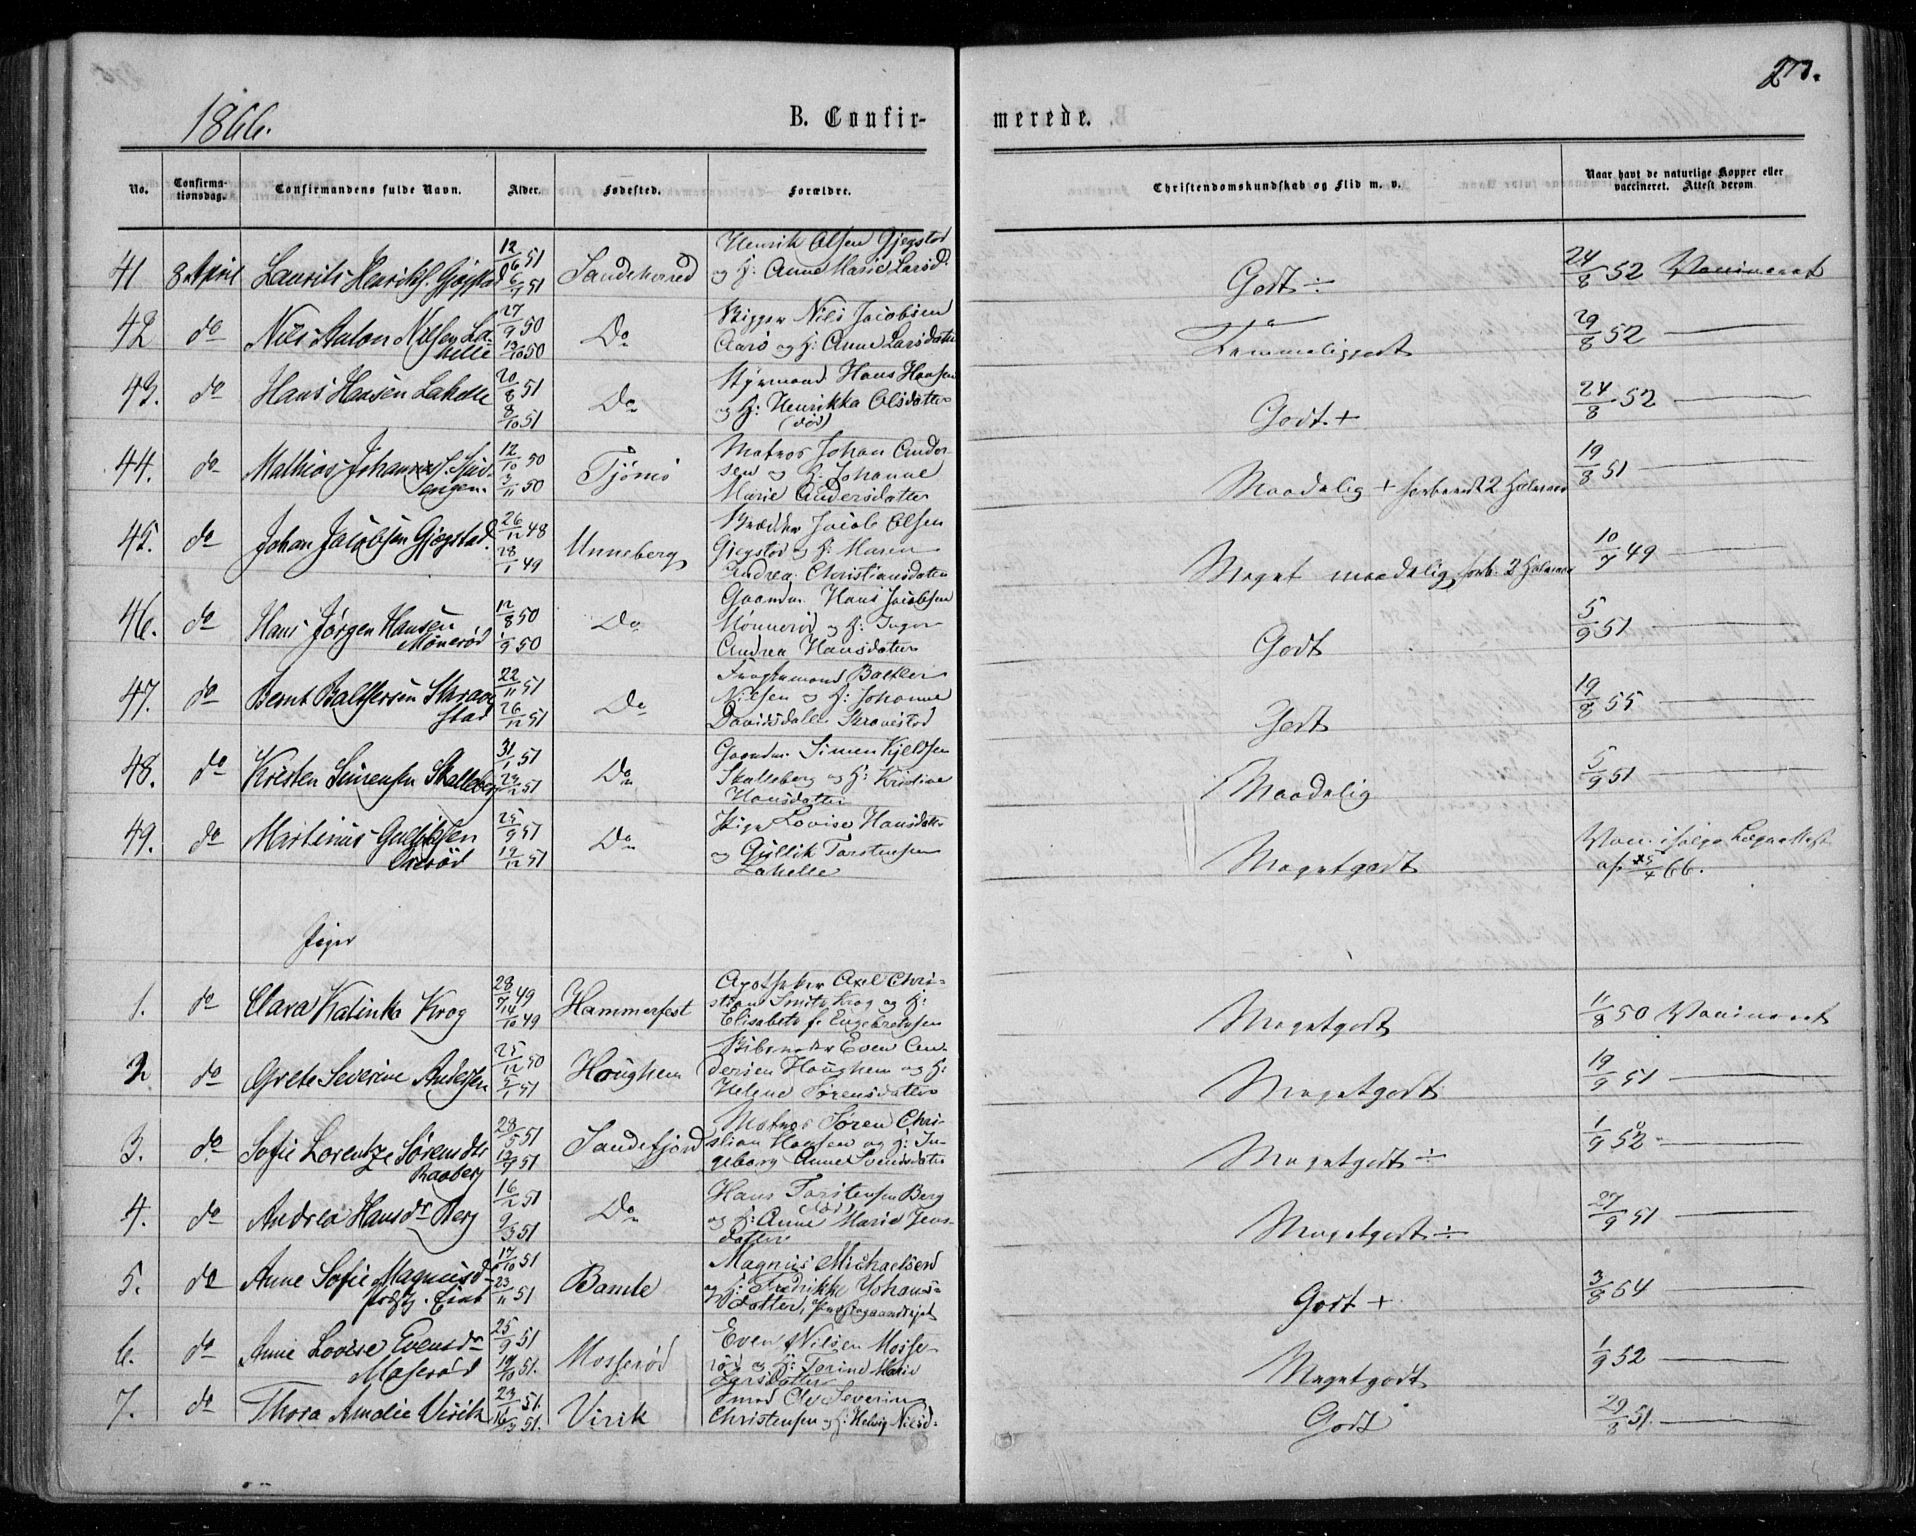 1866.
B. Confir-
merede.
273.
No.
Confirma-
tionsdag.
Confirmandens fulde Navn.
Alder.
Fødested.
Forældre.
Christendomskundskab og Flid m. v.
Naar havt de naturlige Kopper eller
vaccineret. Attest derom
41 8 April Laurits Henriks. Gjøgstad 12/6 51 6/7 51 Sandeherred
Henrik Olsen Gjegstad
og H: Anne Marie Larsd.
Godt ÷
24/8 52 Vaccineret
42 do Nils Anton Nilsen La-
helle
27/9 50 19/10 50 Do
Rigger Nils Jacobsen
Aarø og H: Anne Larsdatter
Temmeliggodt
29/8 52
43. do Hans Hansen Lahelle 20/8 51 8/10 51 Do
Styrmand Hans Hansen
og H: Henrikka Olsdatter
(død)
Godt +
24/8 52
44. do Mathias Johannes.
12/10 50 3/11 50 Tjømø
Matros Johan Ander-
sen og H: Johanne
Marie Andersdatter
Maadelig + forberedt 2 Halvaar
19/8 51
45. do Johan Jacobsen Gjøgstad. 26/12 48 28/1 49 Unneberg
Snedker Jacob Olsen
Gjegstad og H: Maren
Andrea Christiansdatter
Meget maadelig forb. 2 Halvaar
10/7 49
46. do Hans Jørgen Hansen
Mønerød
12/8 50 1/9 50 Do
Gaardm. Hans Jacobsen
Mønnerød og H: Inger
Andrea Hansdatter
Godt
5/9 51
47. do Bernt Baltsersen Skrav-
stad
22/11 51 26/12 51 Do
Nilsen og H: Johanne
Davidsdatter Skravestad
Godt
19/8 55
48. do Kristen Simensen Skalleberg 31/1 51 Do
Gaardm. Simen Kjeldsen
Skalleberg og H: Kristine
Hansdatter
Maadelig
5/9 51
49. do Martinus Gulliksen
25/9 51 19/12 51 Do
Pige Lovise Hansdatter
og Gullik Torstensen
Lahelle
Megetgodt
Vacc. ifølge Lægeattest
af 25/4 66.
Piger
1. do Clara Katinka Krog 28/7 49 14/10 49 Hammerfest
Apotheker Axel Chri-
stian Smith Krog og H:
Elisabeth f. Engebretsen
Megetgodt
11/8 50 Vaccineret
2 do Grete Severine Andersen 25/12 50 5/1 51 Houghem
Skibsreder Even An-
dersen Houghem og H:
Helene Sørensdatter
Megetgodt
19/9 51
3. do Sofie Lorentze Sørensdtr
Raaberg
28/5 51 13/7 51 Sandefjord
Matros Søren Chri-
stian Hansen og H: In-
geborg Anne Svendsdatter
Megetgodt ÷
1/9 52
4. do Andrea Hansdr Berg 16/2 51 9/3 51 Do
Hans Torstensen Berg
(død)
og H: Anne Marie Jens-
datter
Megetgodt ÷
27/9 51
5. do Anne Sofie Magnusd.
17/10 51 23/11 51 Bamle
Magnus Michaelsen
og H: Fredrikke Johans-
datter, Præstegaardsejet
Godt +
3/8 54
6. do Anne Lovise Evensdr
Moserød
25/9 51 19/10 51. Mosserød
Even Nilsen Mosse-
rød og H: Torine Marie
Larsdatter
Megetgodt
1/9 52
7. do Thora Amalie Virik 23/1 51. 16/3 51. Virik
Smed Ole Severin
Christensen og H: Helvig Nilsd.
Godt
29/8 51.